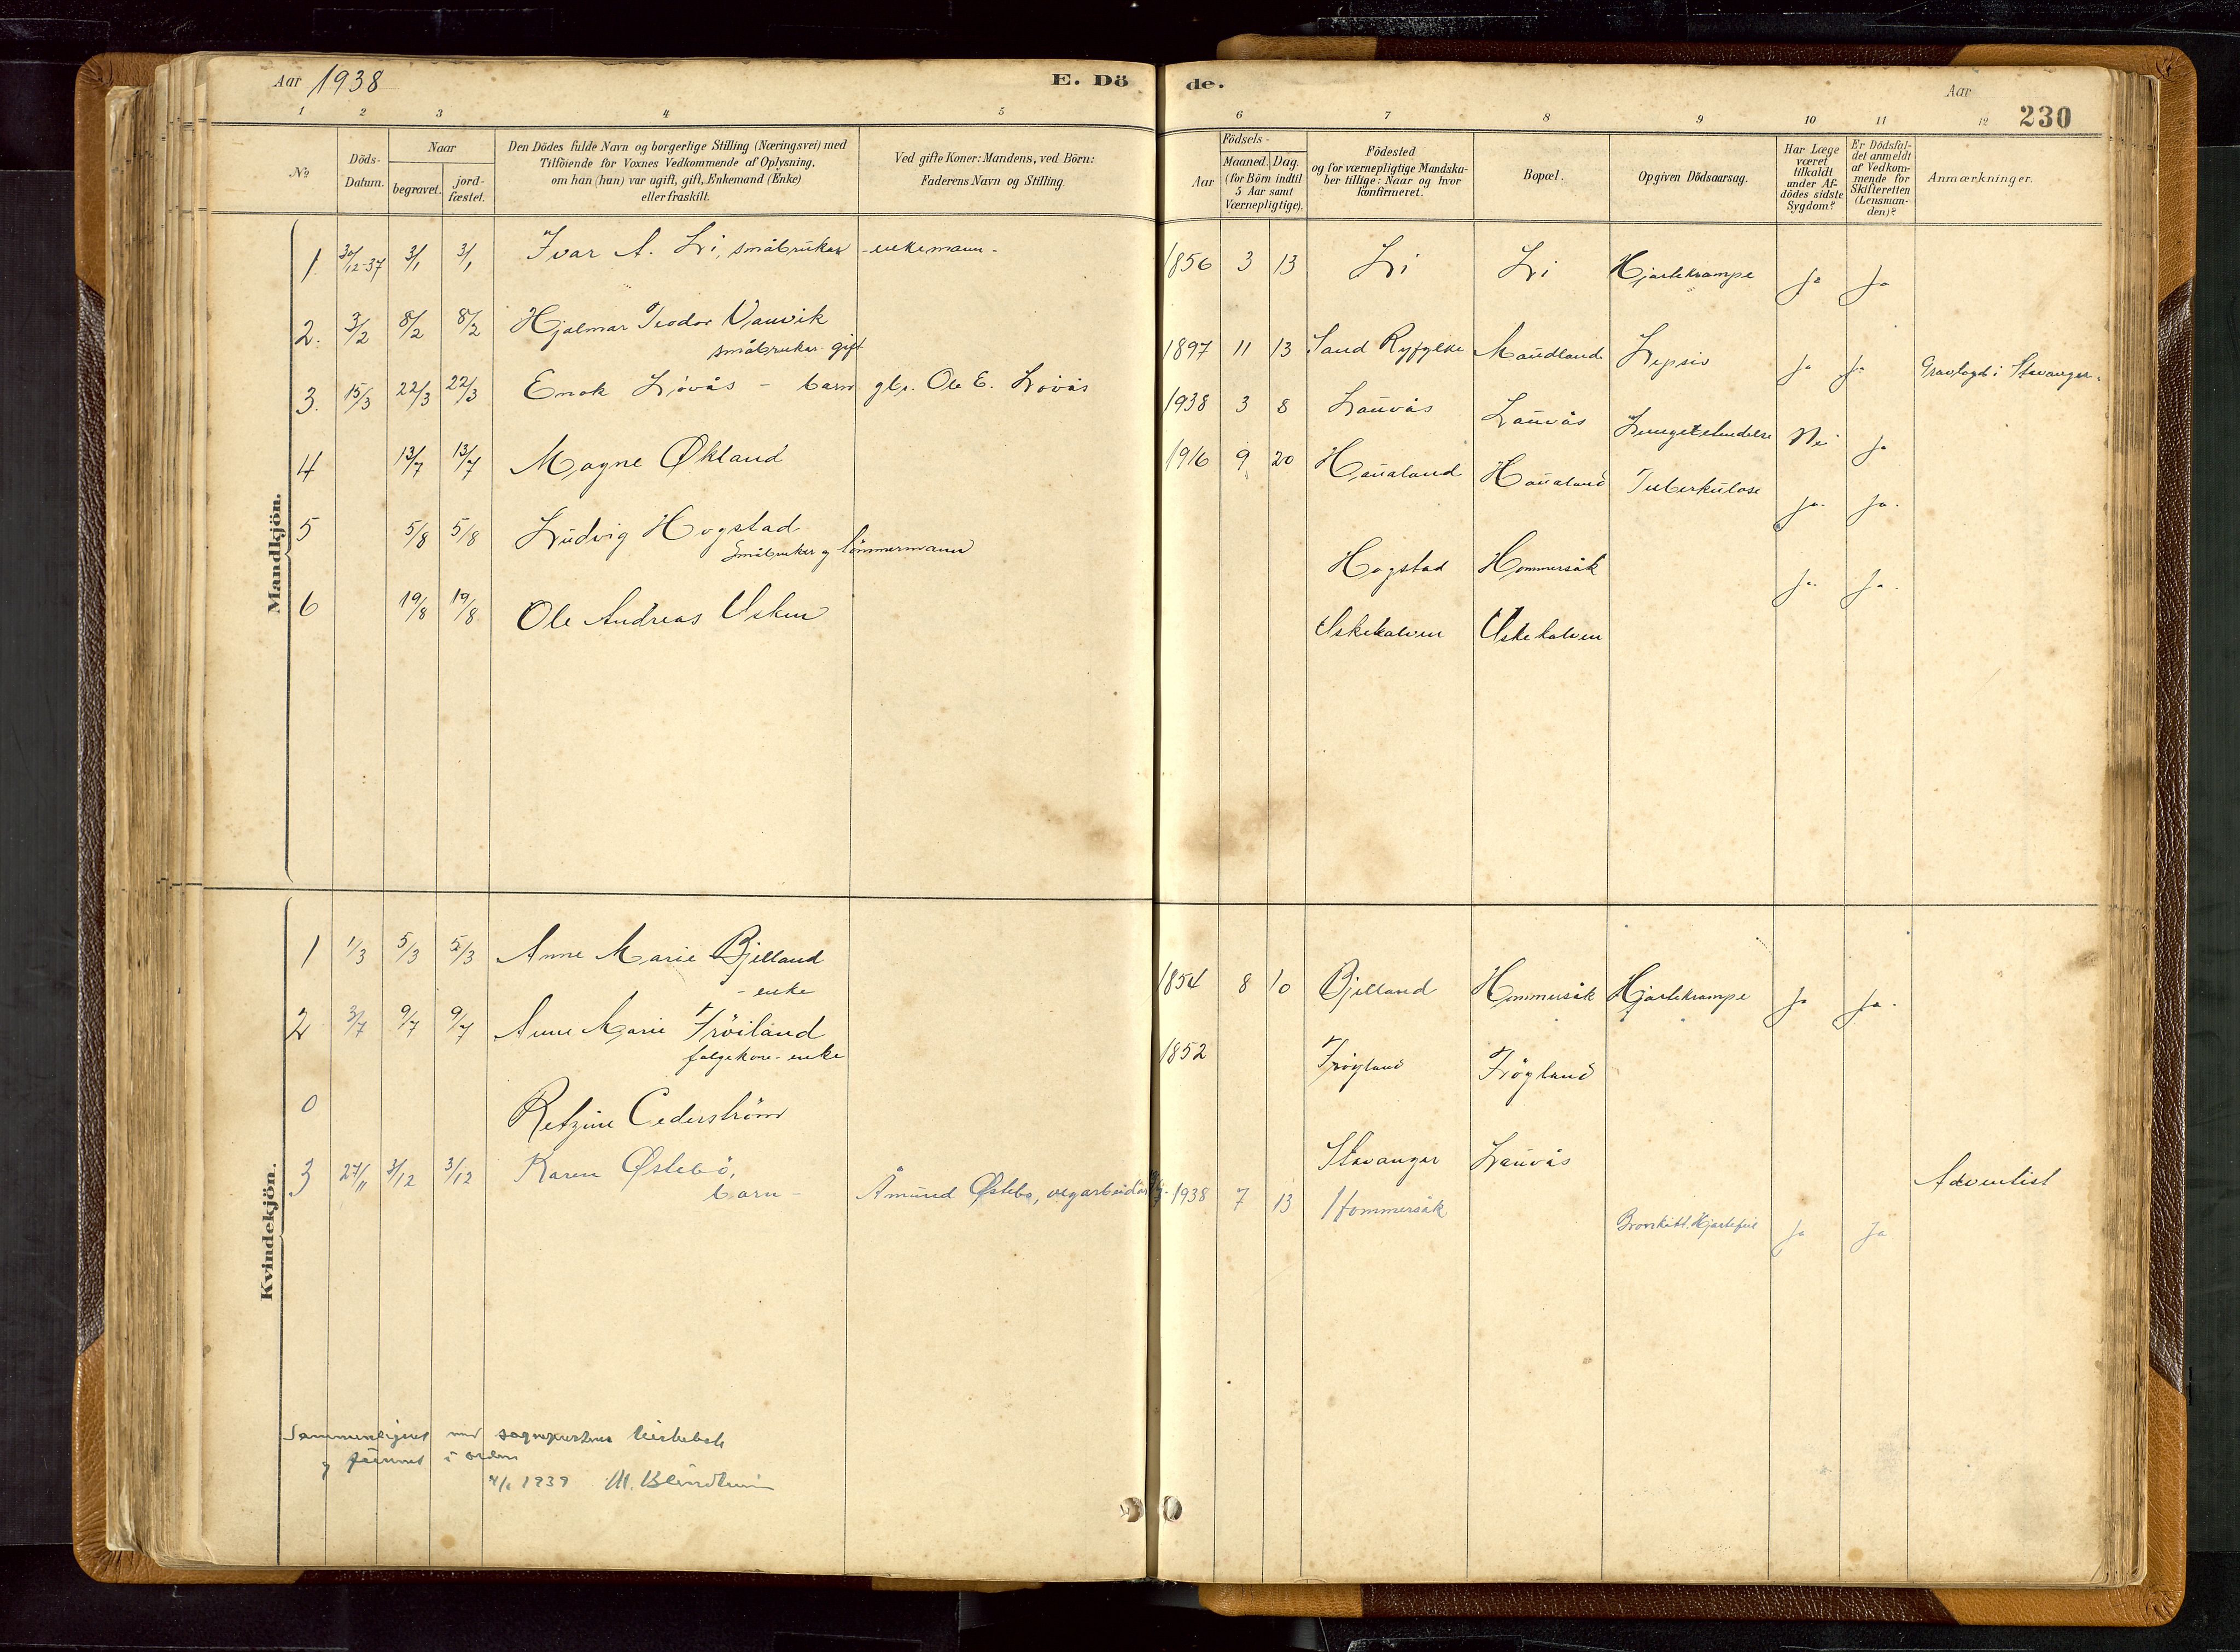 Aar 1938
E. Dö
de.
Aar
230
1 2 3 4 5 6 7 8 9 10 11 12
No
Döds-
Datum.
Naar
begravet.
jord-
fæstet.
Den Dödes fulde Navn og borgerlige Stilling (Næringsvei) med
Tilföiende for Voxnes Vedkommende af Oplysning,
om han (hun) var ugift, gift, Enkemand (Enke)
eller fraskilt.
Ved gifte Koner: Mandens, ved Börn:
Faderens Navn og Stilling.
Aar
Födsels-
Maaned. Dag.
(for Börn indtil
5 Aar samt
Værnepligtige).
Födested
og for værnepligtige Mandska-
ber tillige: Naar og hvor
konfirmeret.
Bopæl.
Opgiven Dödsaarsag.
Har Læge
været
tilkaldt
under Af-
dödes sidste
Sygdom?
Er Dödsfal-
det anmeldt
af Vedkom-
mende for
Skifteretten
(Lensman-
den)?
Anmærkninger.
Mandkjön.
1 30/12-37 3/1 3/1 Ivar A. Li, småbruker - enkemann - 1856 3 13 Li Li Hjartekrampe Ja Ja
2. 3/2 8/2 8/2 Hjalmar Teodor Vanvik
småbruker gift 1897 11 13 Sand Ryfylke Maudland Ja Ja Gravlagt i Stavanger.
3. 15/3 22/3 22/3 Enok Lövås - barn gbr. Ole E. Lövås 1938 3 8 Lauvås Lauvås Nei Ja
4 13/7 13/7 Magne Økland 1916 9 20 Haualand Haualand Tuberkulose Ja. Ja.
5 5/8 5/8 Ludvig Hogstad
Småbruker og tömmermann Hogstad Hommersåk Ja. Ja.
6 19/8 19/8 Ole Andreas Usken Uskekalven Uskekalven
Kvindekjön.
1 1/3 5/3 5/3 Anne Marie Bjelland
- enke 1854 8 10 Bjelland Hommersåk Hjartekrampe Ja Ja.
2 3/7 9/7 9/7 Anne Marie Fröiland
folgekone - enke 1852 Fröyland Fröyland
0 Retzine Cederström Stavanger Lauvås Adventist
3 27/11 3/12 3/12 Karen Østebö,
barn - Åmund Østebø, vegarbeidar 1938 7 13 Hommersåk Bronkitt. Hjartefeil Ja Ja
Sammenlignet med sogneprestens kirkebok
og funnet i orden
1939 M. Blindheim